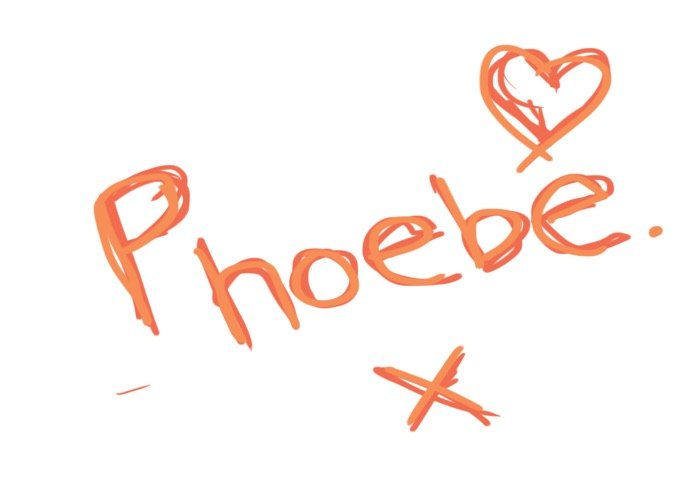 Phoebe.
x